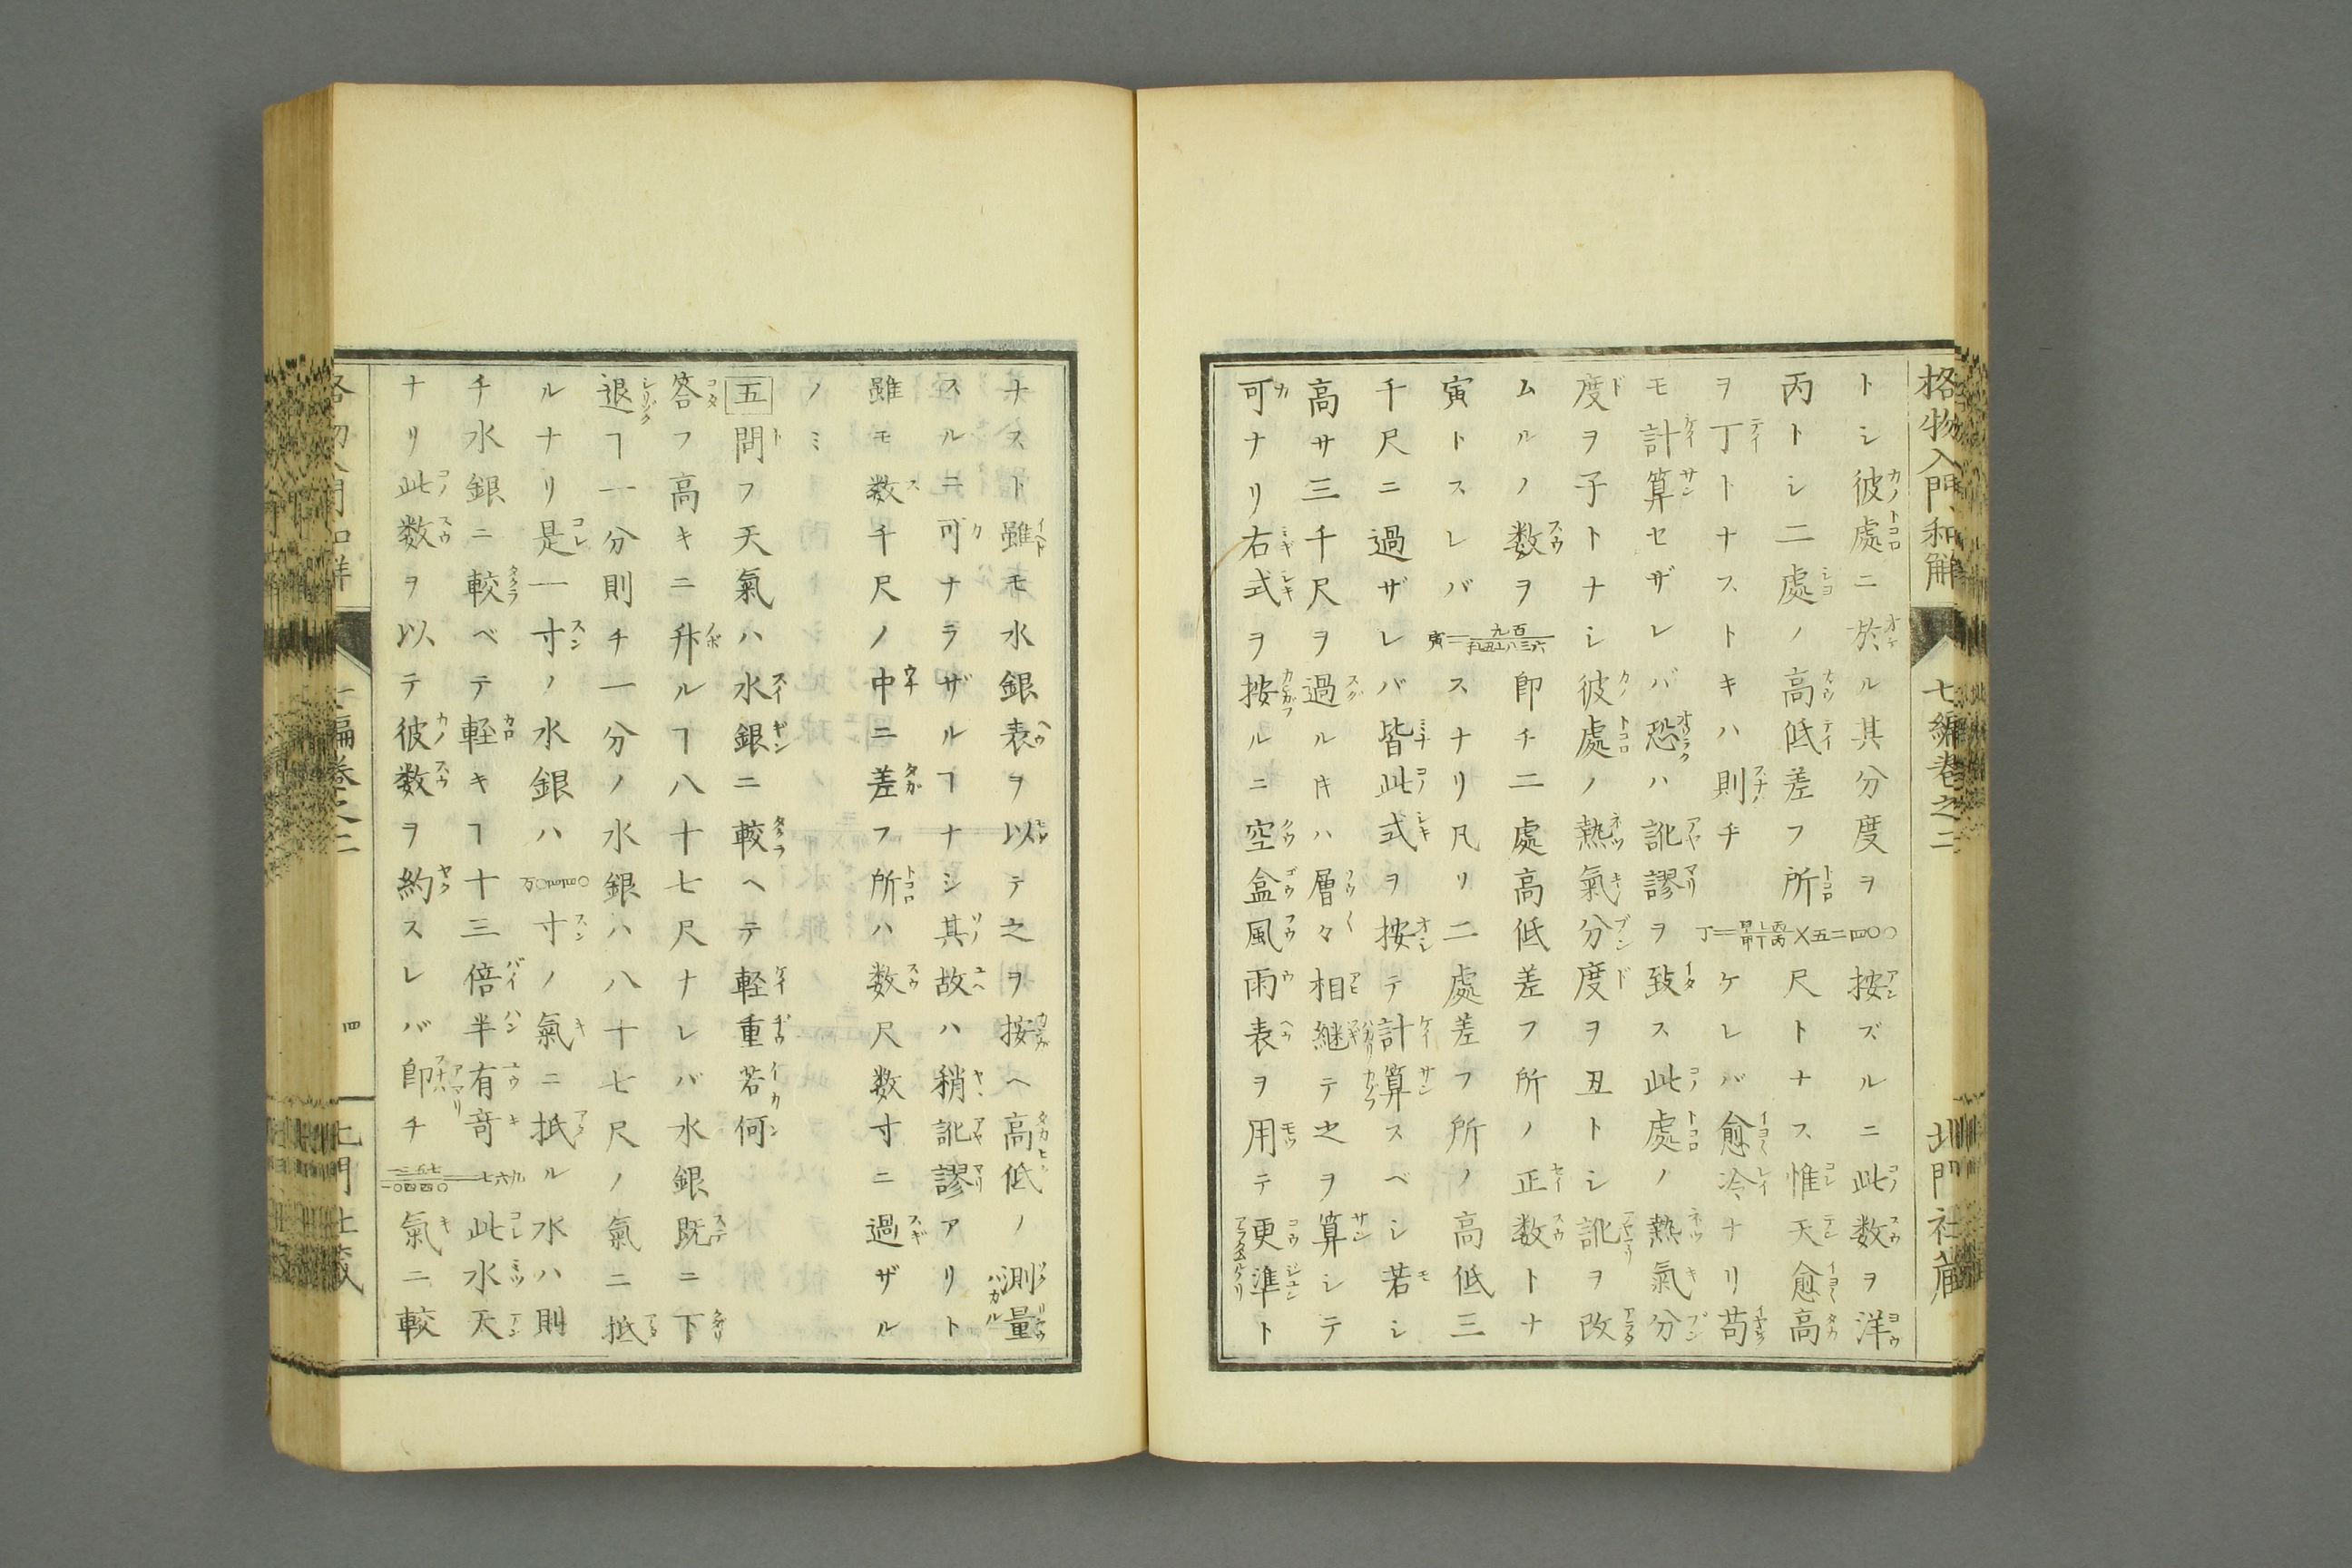 格物入門和解 七編巻之二 北門社蔵
トシ彼處ニ於ル其分度ヲ〇〇四二五按ズルニ此数ヲ洋
丙トシ二處ノ高低差フ所尺トナス惟天愈高
ヲ丁トナストキハ則チケレバ愈冷ナリ苟
モ計算セザレバ恐ハ訛謬ヲ致ス此處ノ熱氣分
度ヲ子トナシ彼處ノ熱氣分度ヲ丑トシ訛ヲ改
ムルノ数ヲ即チ二處高低差フ所ノ正数トナ
寅トスレバスナリ凡リ二處差フ所ノ高低三
千尺ニ過ザレバ皆此式ヲ按テ計算スベシ若シ
高サ三千尺ヲ過ル𪜈ハ層々相継テ之ヲ算シテ
可ナリ右式ヲ按ルニ空盒風雨表ヲ用テ更準ト
ナスト雖モ水銀表ヲ以テ之ヲ按ヘ高低ノ測量
スルニ可ナラザルヿナシ其故ハ稍訛謬アリト
雖モ数千尺ノ中ニ差フ所ハ数尺数寸ニ過ザル
ノミ
五 問フ天氣ハ水銀ニ較ヘテ軽重若何
答フ高キニ升ルヿ八十七尺ナレバ水銀既ニ下
退ヿ一分則チ一分ノ水銀ハ八十七尺ノ氣ニ抵
ルナリ是一寸ノ水銀ハ寸ノ氣ニ抵ル水ハ則
チ水銀ニ較ベテ軽キヿ十三倍半有竒此水天
ナリ此数ヲ以テ彼数ヲ約スレバ即チ氣ニ較
四